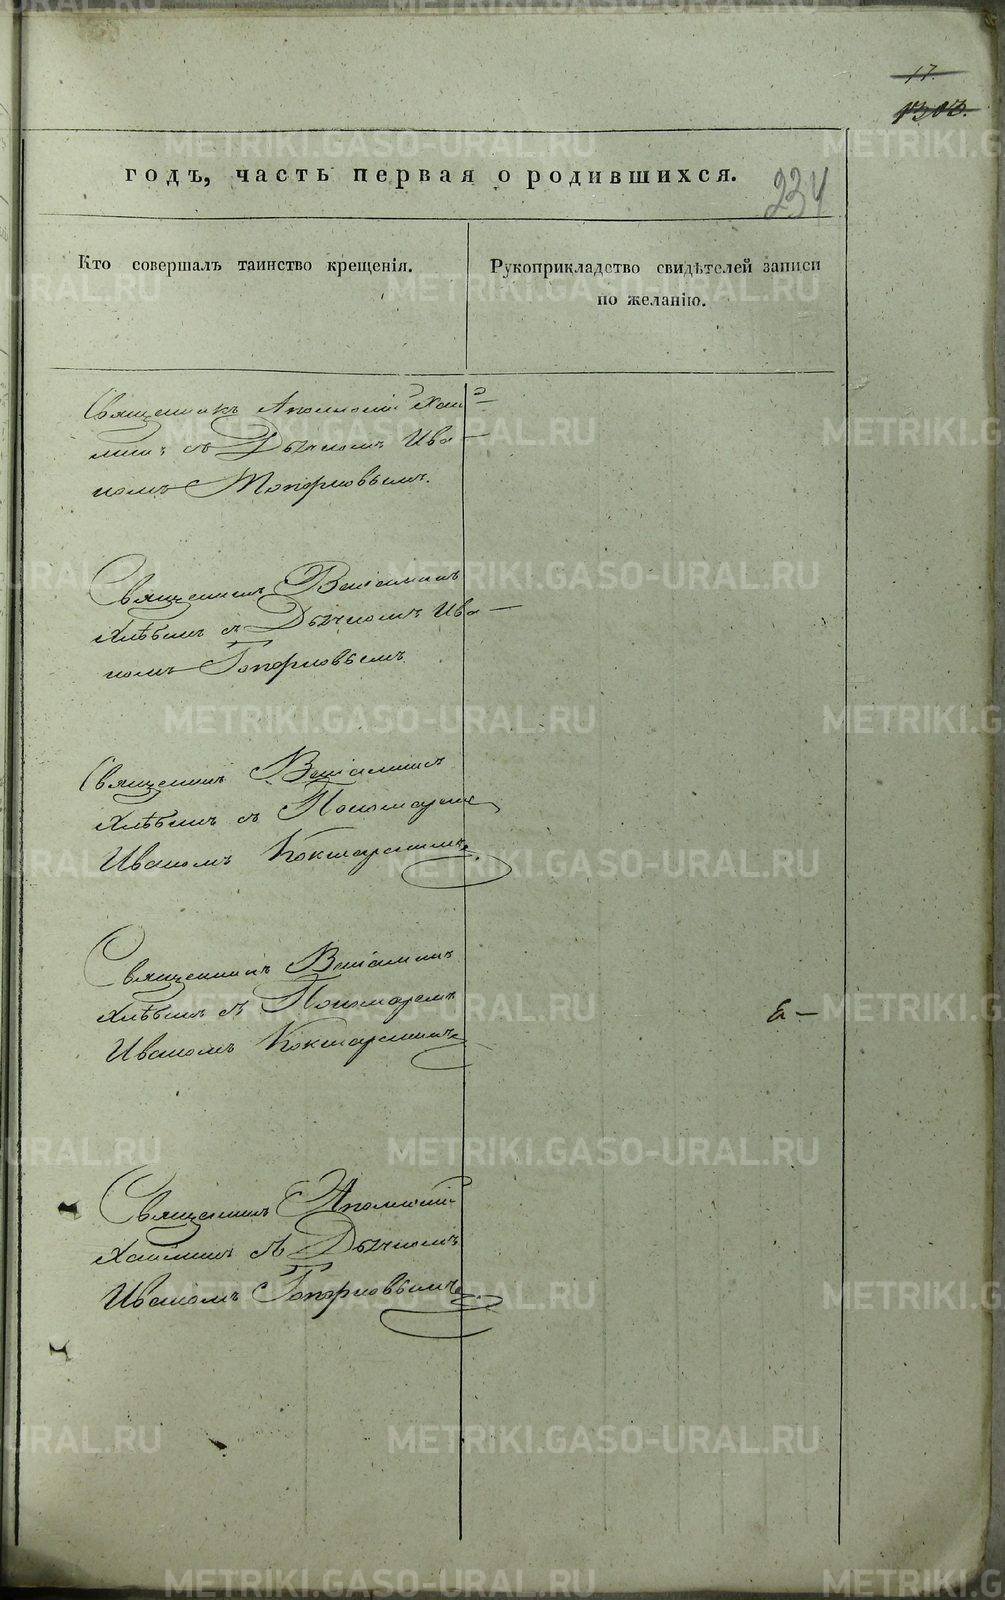 17.
1303.
годъ, часть первая о родившихся.
234
Кто совершалъ таинство крещенія.
Рукоприкладство свидѣтелей записи
по желанію.
Священникъ
съ Дьячкомъ Ива-
номъ Топорковымъ.
Священникъ Веніаминъ
Хлѣбинъ съ Дьячкомъ Ива-
номъ Топорковымъ
Священникъ Веніаминъ
Хлѣбинъ съ Пономаремъ
Иваномъ Кокшарскимъ
Священникъ Веніаминъ
Хлѣбинъ съ Пономаремъ
Иваномъ Кокшарскимъ
Священникъ
съ Дьячкомъ
Иваномъ Топорковымъ
METRIKI.GASO-URAL.RU